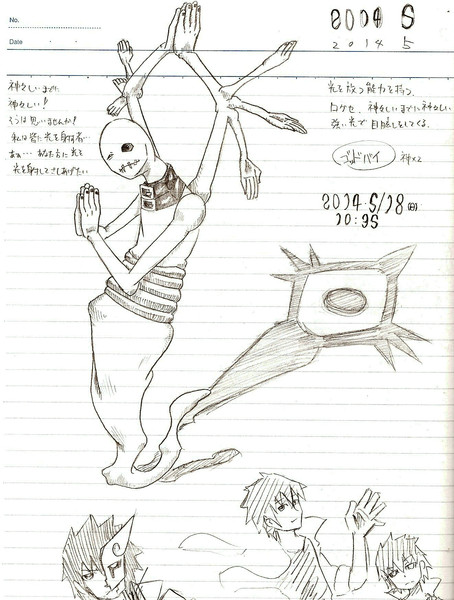 No.
Date
2014 5
2 0 1 4 5
神々しいまでに
神々しい!
そうは思いませんか!
私は皆に光を射す者…
あぁ…あなた方に光を
光を射してさしあげたい
光を放つ能力を持つ
神々しいまでに神々しい
強い光で目隠しをしてくる。
ゴッドバイ 神×2
2014.5/18(日)
10:35